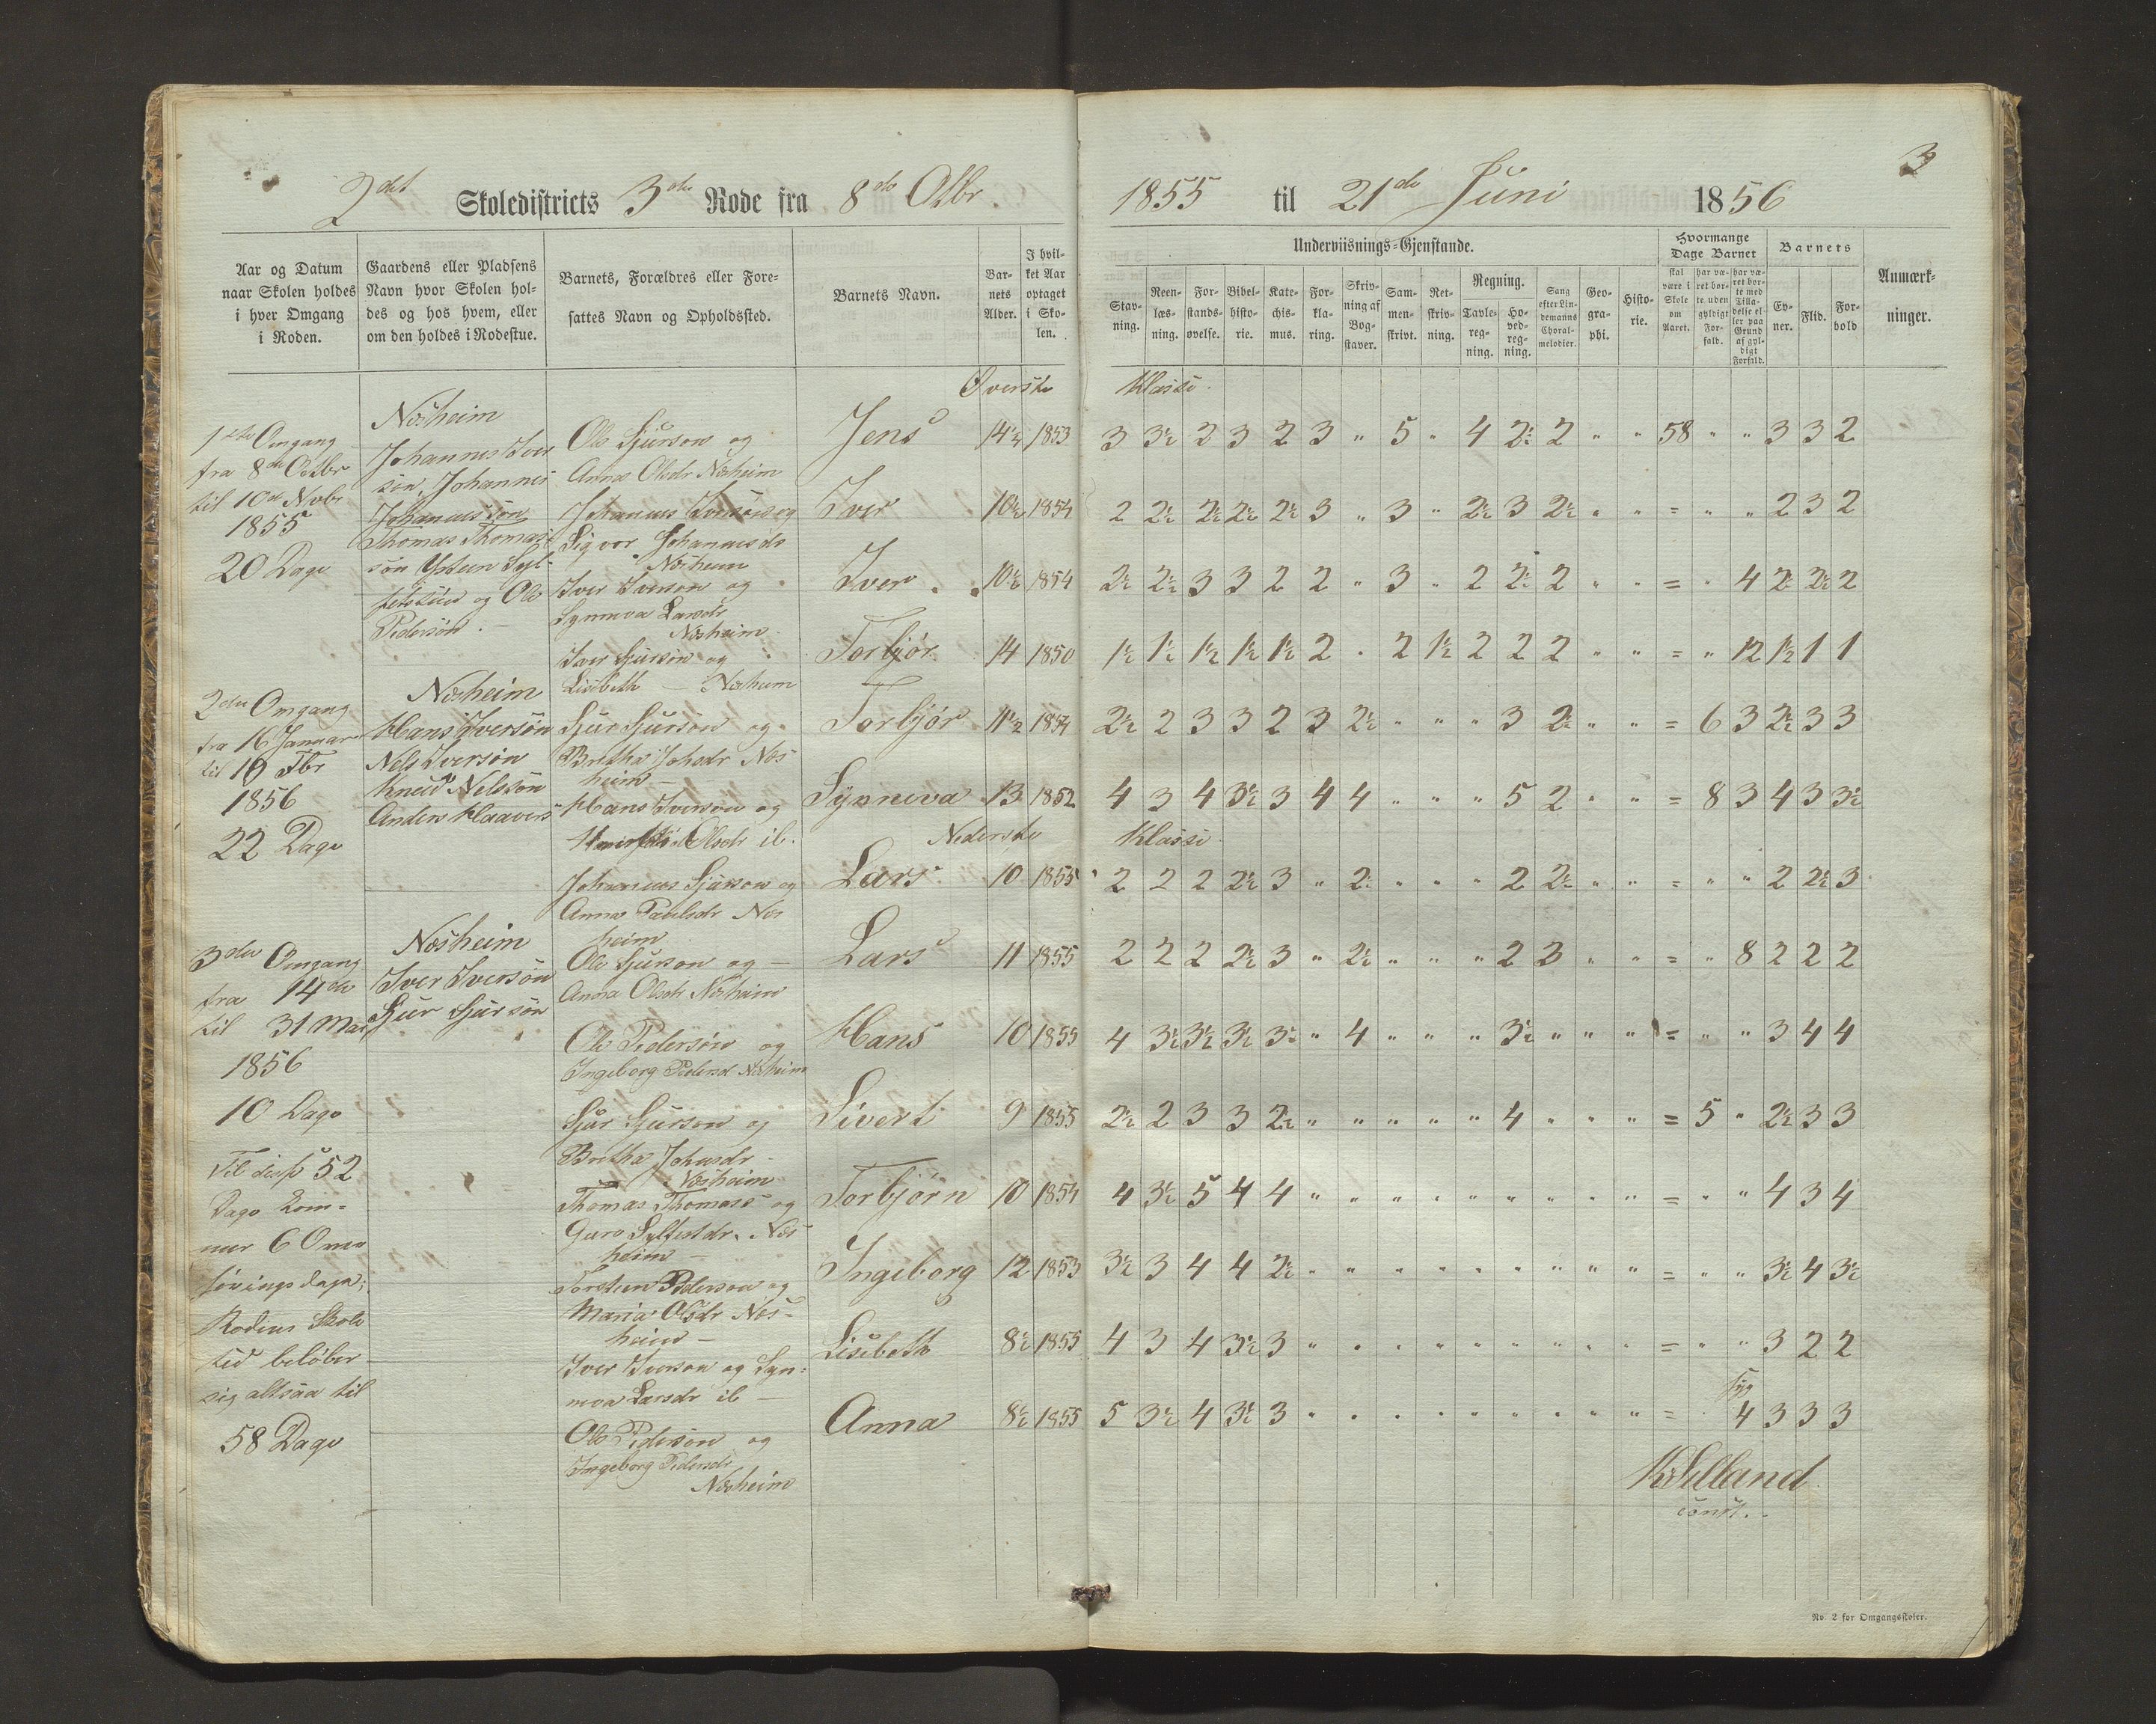 3
2det Skoledistricts 3die Rode fra 8de Octbr. 1855 til 21de Juni 1856
Aar og Datum naar Skolen holdes i hver Omgang i Roden.
Gaardens eller Pladsens Navn hvor Skolen holdes og hos hvem, eller om den holdes i Rodestue.
Barnets, Forældres eller Foresattes Navn og Opholdssted.
Barnets Navn.
Barnets Alder.
I hvilket Aar optaget i Skolen.
Underviisnings-Gjenstande.
Stavning.
Reenlæsning.
Forstandsøvelse.
Bibelhistorie.
Katechismus.
Forklaring.
Skrivning af Bogstaver.
Sammenskrivt.
Retskrivning.
Regning.
Tavleregning.
Hovedregning.
Sang efter Lindemanns Choralmelodier.
Geographi.
Historie.
Hvormange Dage Barnet
skal være i Skole om Aaret.
har været borte uden gyldigt Forfald.
har været borte med Tilladelse eller paa Grund af gyldigt Forfald.
Barnets
Evner.
Flid.
Forhold
Anmærkninger.
Øverste Klasse.
1ste Omgang
fra 8de Octbr
til 10de Novbr
1855
20 Dage
Næsheim
Johannes Iver
søn, Johannes
Johannessøn
Thomas Thomas
søn
og Ole
Pedersøn.
2den Omgang
fra 16 Januar
til 19 Fbr
1856
22 Dage
Næsheim
Hans Iversøn
Nels Iversøn
Knud Nelssøn
Anders Haavers
3die Omgang
fra 14de
til 31 Mai
1856
10 Dage
Næsheim
Iver Iversøn
Sjur Sjursøn
Til disse 52
Dage kom-
mer 6 Omg
høringsdage;
Rodens Skole
tid beløber
sig altsaa til
58 Dage
Ole Sjursøn og
Anna Olsdr Næsheim
Jens 14½ 1853 3 3½ 2 3 2 3 " 5 " 4 2½ 2 " " 58 " " 3 3 2
Johannes Iversøn og
Sigvor Johannesdr
Næsheim
Iver 10½ 1854 2 2½ 2½ 2½ 2½ 3 " 3 " 2½ 3 2½ " " = " " 2 3 2
Iver Iversøn og
Synneva Larsdr
Næsheim
Iver 10½ 1854 2½ 2½ 3 3 2 2 " 3 " 2 2½ 2 " " = " 4 2½ 2½ 2
Iver Sjursøn og
Lisbeth — Næsheim
Torbjør 14 1850 1½ 1½ 1½ 1½ 1½ 2 " 2 1½ 2 2 2 " " = " 12 1½ 1 1
Sjur Sjursøn og
Bretha Johsdr Næs
heim —
Torbjør 11½ 1854 2½ 2 3 3 2 3 2½ " " " 3 2½ " " = 6 3 2½ 3 3
Hans Iversøn og
Olsdr ib.
Synneva 13 1852 4 3 4 3½ 3 4 4 " " " 5 2 " " = 8 3 4 3 3½
Nederste Klasse.
Johannes Sjursøn og
Anna Paulsdr Næs
heim
Lars 10 1855 2 2 2 2½ 3 " 2½ " " " 2 2½ " " = " " 2 2½ 3
Ole Sjursøn og —
Anna Olsdr Næsheim
Lars 11 1855 2 2 2 2½ 3 " 2½ " " " 2 3 " " = " 8 2 2 2
Ole Pedersøn og
Ingeborg Pedersd Næsheim
Hans 10 1855 4 3½ 3½ 3½ 3½ " 4 " " " 3½ " " " = " " 3 4 4
Sjur Sjursøn og
Bretha Johnsdr
Næsheim
Sivert 9 1855 2½ 2 3 3 2½ " " " " " 4 " " " = 5 " 2½ 3 3
Thomas Thomass og
Guro Sylfestdr. Næs
heim —
Torbjørn 10 1854 4 3½ 5 4 4 " " " " " " " " " = " " 4 3 4
Torstein Pedersøn og
Maria Olsdr Næs-
heim —
Ingeborg 12 1853 3½ 3 4 4 2½ " " " " " " " " " = " " 3½ 4 3½
Iver Iversøn og Syn:
neva Larsdr ib —
Lisebeth 8½ 1855 4 3 4 3½ 3 " " " " " " " " " = " " 3 2 2
Ole Pedersøn og
Ingeborg Pedersdr
Næsheim
Anna 8½ 1855 5 3½ 4 3½ 3 " " " " " " " " " = " syg 4 3 3 3
const.
No. 2 for Omgangsskoler.